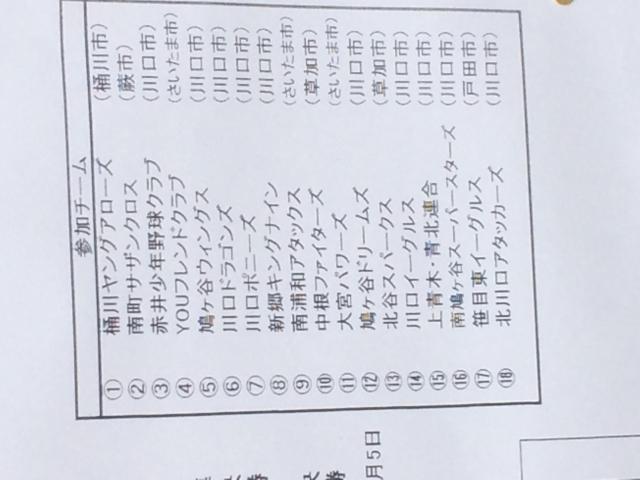 参加チーム
① 桶川ヤングアローズ （桶川市）
② 南町サザンクロス （蕨市）
③ 赤井少年野球クラブ （川口市）
④ YOUフレンドクラブ （さいたま市）
⑤ 鳩ヶ谷ウィングス （川口市）
⑥ 川口ドラゴンズ （川口市）
⑦ 川口ポニーズ （川口市）
⑧ 新郷キングナイン （川口市）
⑨ 南浦和アタックス （さいたま市）
⑩ 中根ファイターズ （草加市）
⑪ 大宮パワーズ （さいたま市）
⑫ 鳩ヶ谷ドリームズ （川口市）
⑬ 北谷スパークス （草加市）
⑭ 川口イーグルス （川口市）
⑮ 上青木・青北連合 （川口市）
⑯ 南鳩ヶ谷スーパースターズ （川口市）
⑰ 笹目東イーグルス （戸田市）
⑱ 北川口アタッカーズ （川口市）
月5日